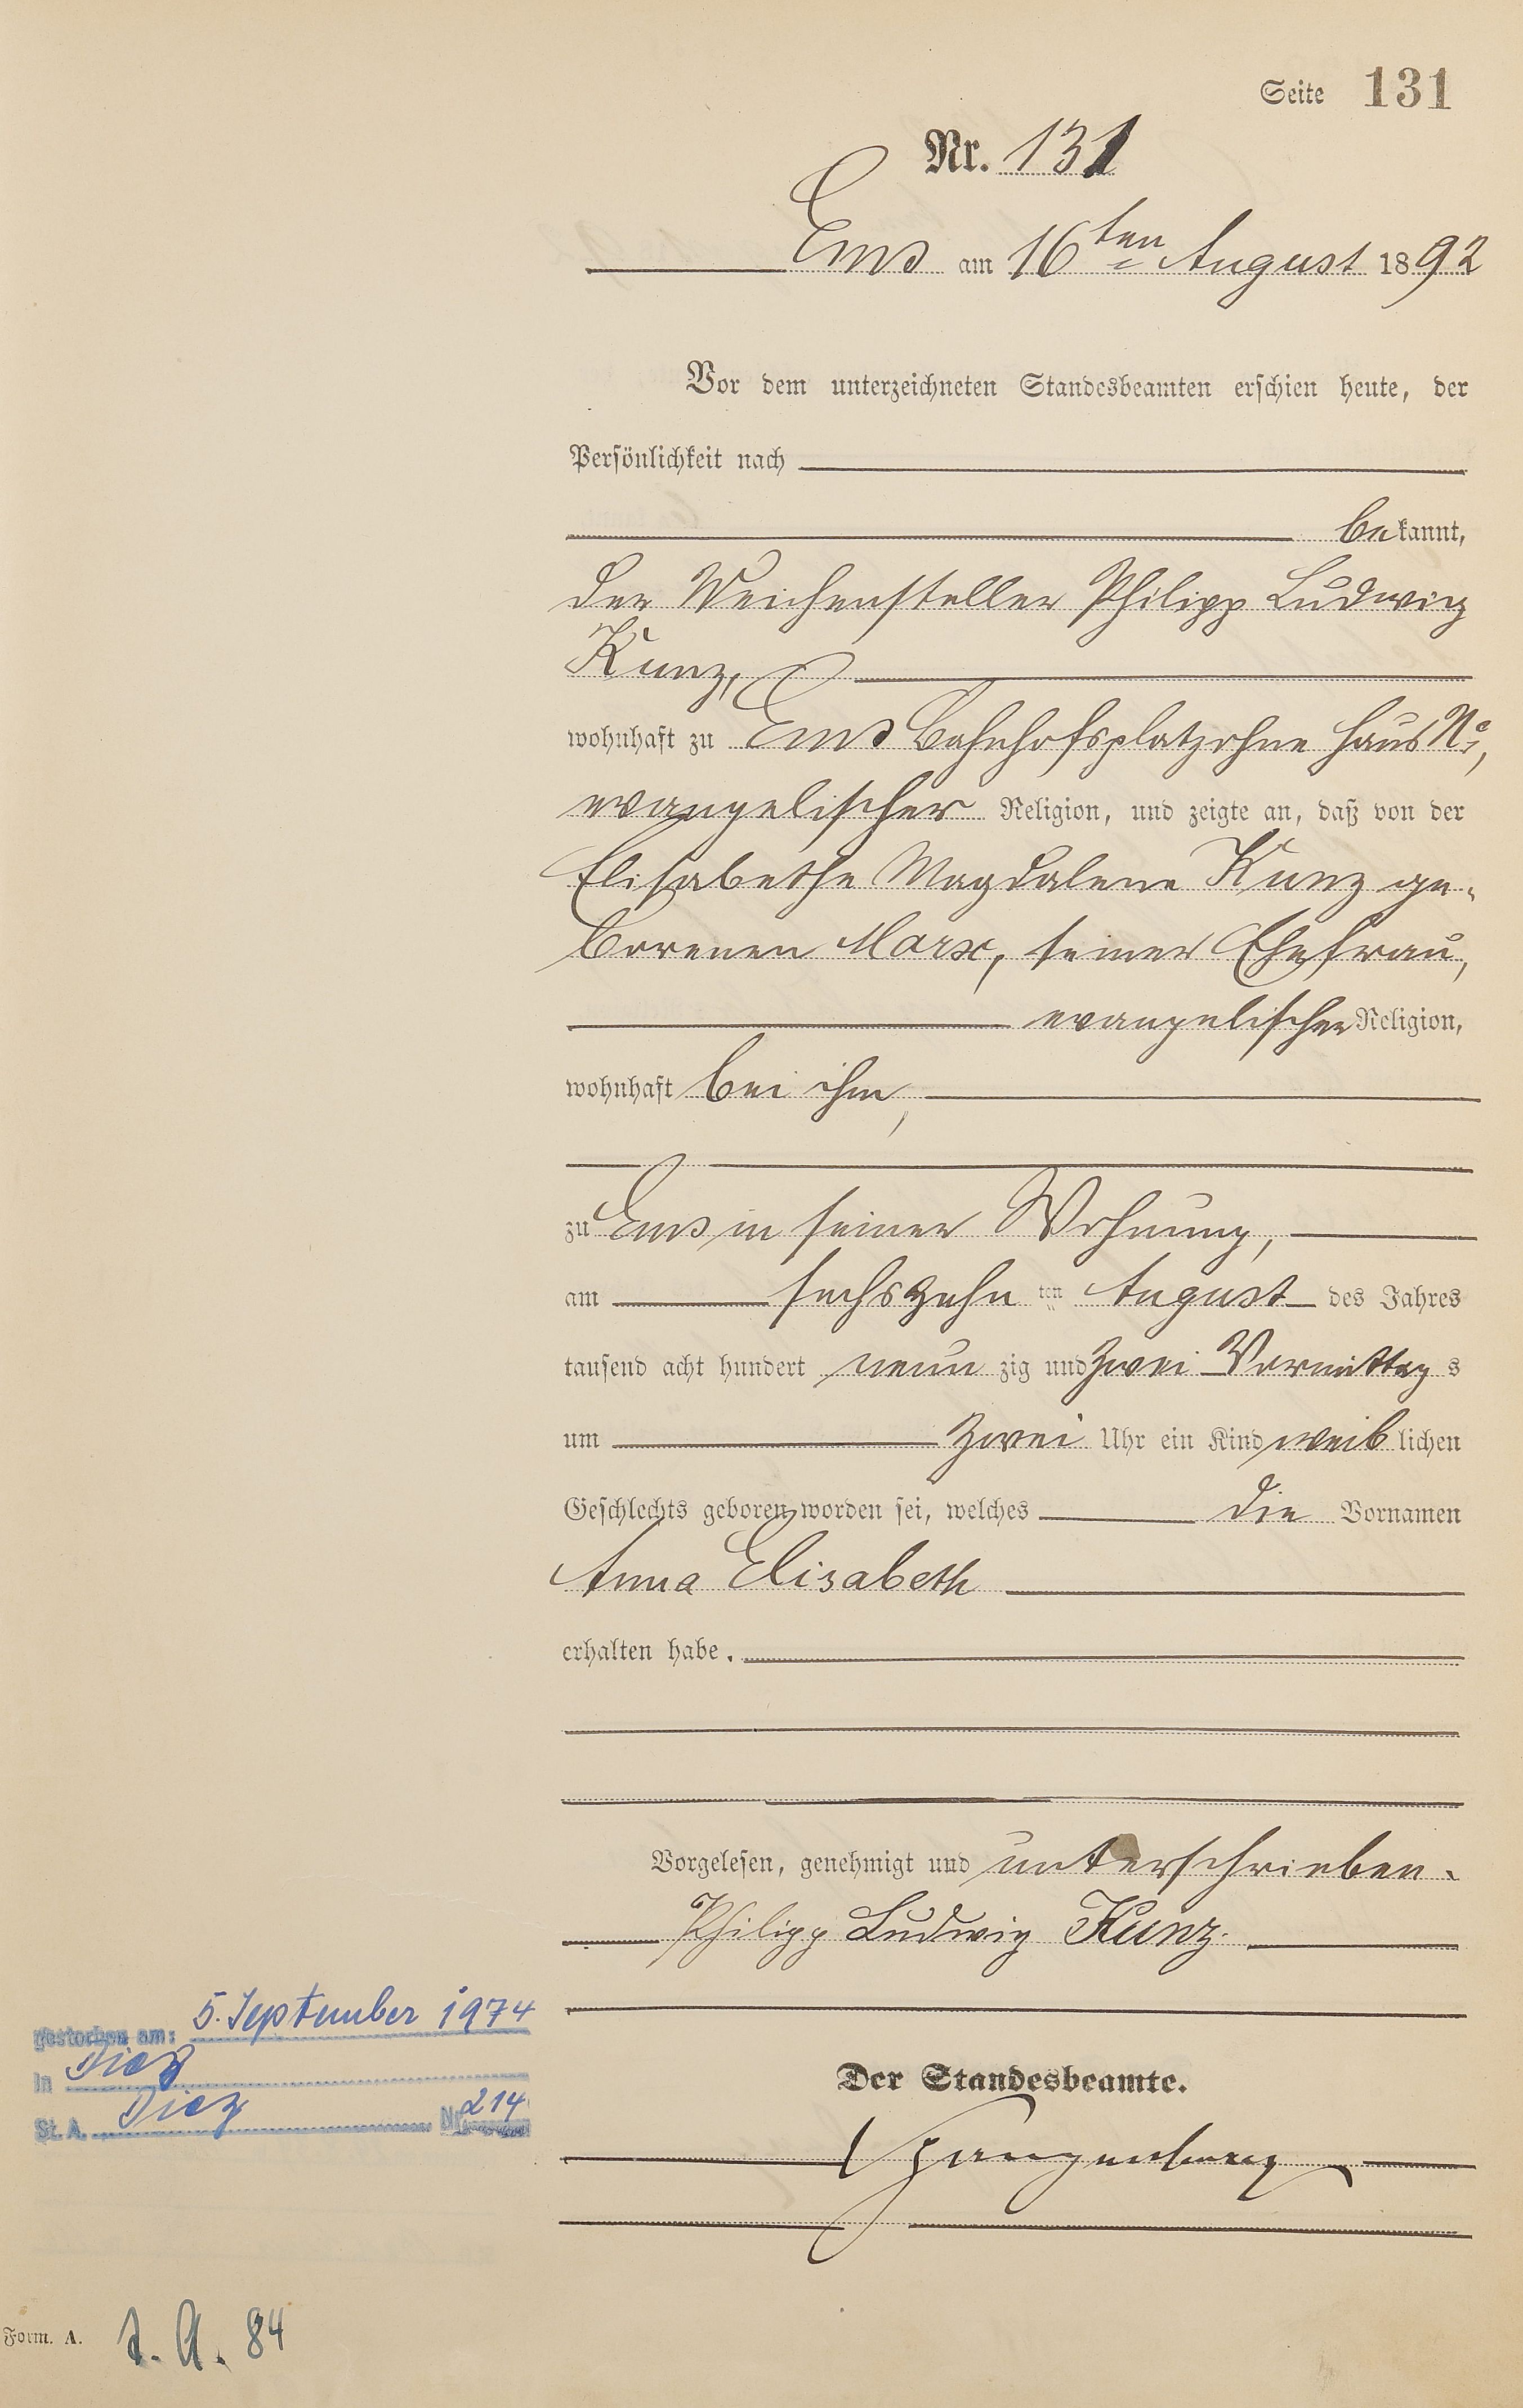 Seite 131
Nr. 131
Ems am 16ten August 1892
Vor dem unterzeichneten Standesbeamten erschien heute, der
Persönlichkeit nach
bekannt,
der Weichensteller Philipp Ludwig
Kunz,
wohnhaft zu Ems Bahnhofsplatz ohne Haus No,
evangelischer Religion, und zeigte an, daß von der
Elisabethe Magdalene Kunz ge-
borenen Marx, seiner Ehefrau,
evangelischer Religion,
wohnhaft bei ihm,
zu Ems in seiner Wohnung,
am sechszehn ten August des Jahres
tausend acht hundert neun zig und zwei Vormittag s
um zwei Uhr ein Kind weib lichen
Geschlechts geboren worden sei, welches die Vornamen
Anna Elisabeth
erhalten habe.
Vorgelesen, genehmigt und unterschrieben.
Philipp Ludwig Kunz.
gestorben am: 5. September 1974
in Diez
St. A. Diez Nr. 214
Der Standesbeamte.
Form. A. S. A. 84